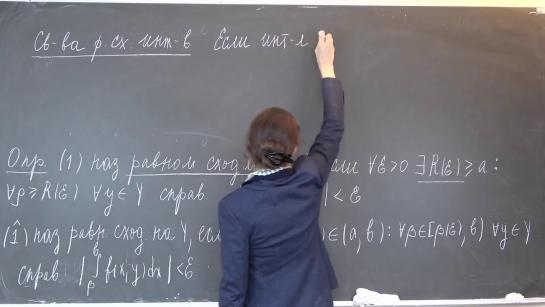 Св-ва р.сх. инт-в Если инт-л
Опр. (1) наз равном сход если ∀ε>0 ∃R(ε)≥a:
∀ρ≥R(ε) ∀y∈Y справ. |<ε
(1̂) наз равн. сход. на Y, если ∈(a,b): ∀β∈[β(ε),b) ∀y∈Y
справ. |∫_β^b f(x,y)dx|<ε